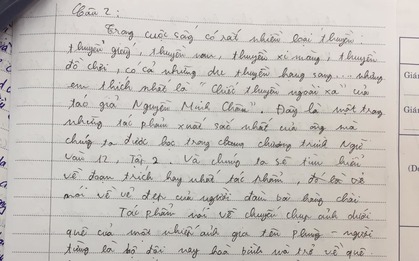 Câu 2:
Trong cuộc sống có rất nhiều loại thuyền:
thuyền giấy, thuyền nan, thuyền xi măng, thuyền
đồ chơi, có cả những du thuyền hạng sang... nhưng
em thích nhất là "Chiếc thuyền ngoài xa" của
tác giả Nguyễn Minh Châu". Đây là một trong
những tác phẩm xuất sắc nhất của ông mà
chúng ta được học trong chương trình Ngữ
văn 12, Tập 2. Và chúng ta sẽ tìm hiểu
về đoạn trích hay nhất tác phẩm, đó là về
nói về vẻ đẹp của người đàn bà hàng chài
Tác phẩm nói về chuyến chụp ảnh dưới
quê của một nhiếp ảnh gia tên Phùng - người
từng là bộ đội nay hoà bình và trở về quê.
Giá
Giá